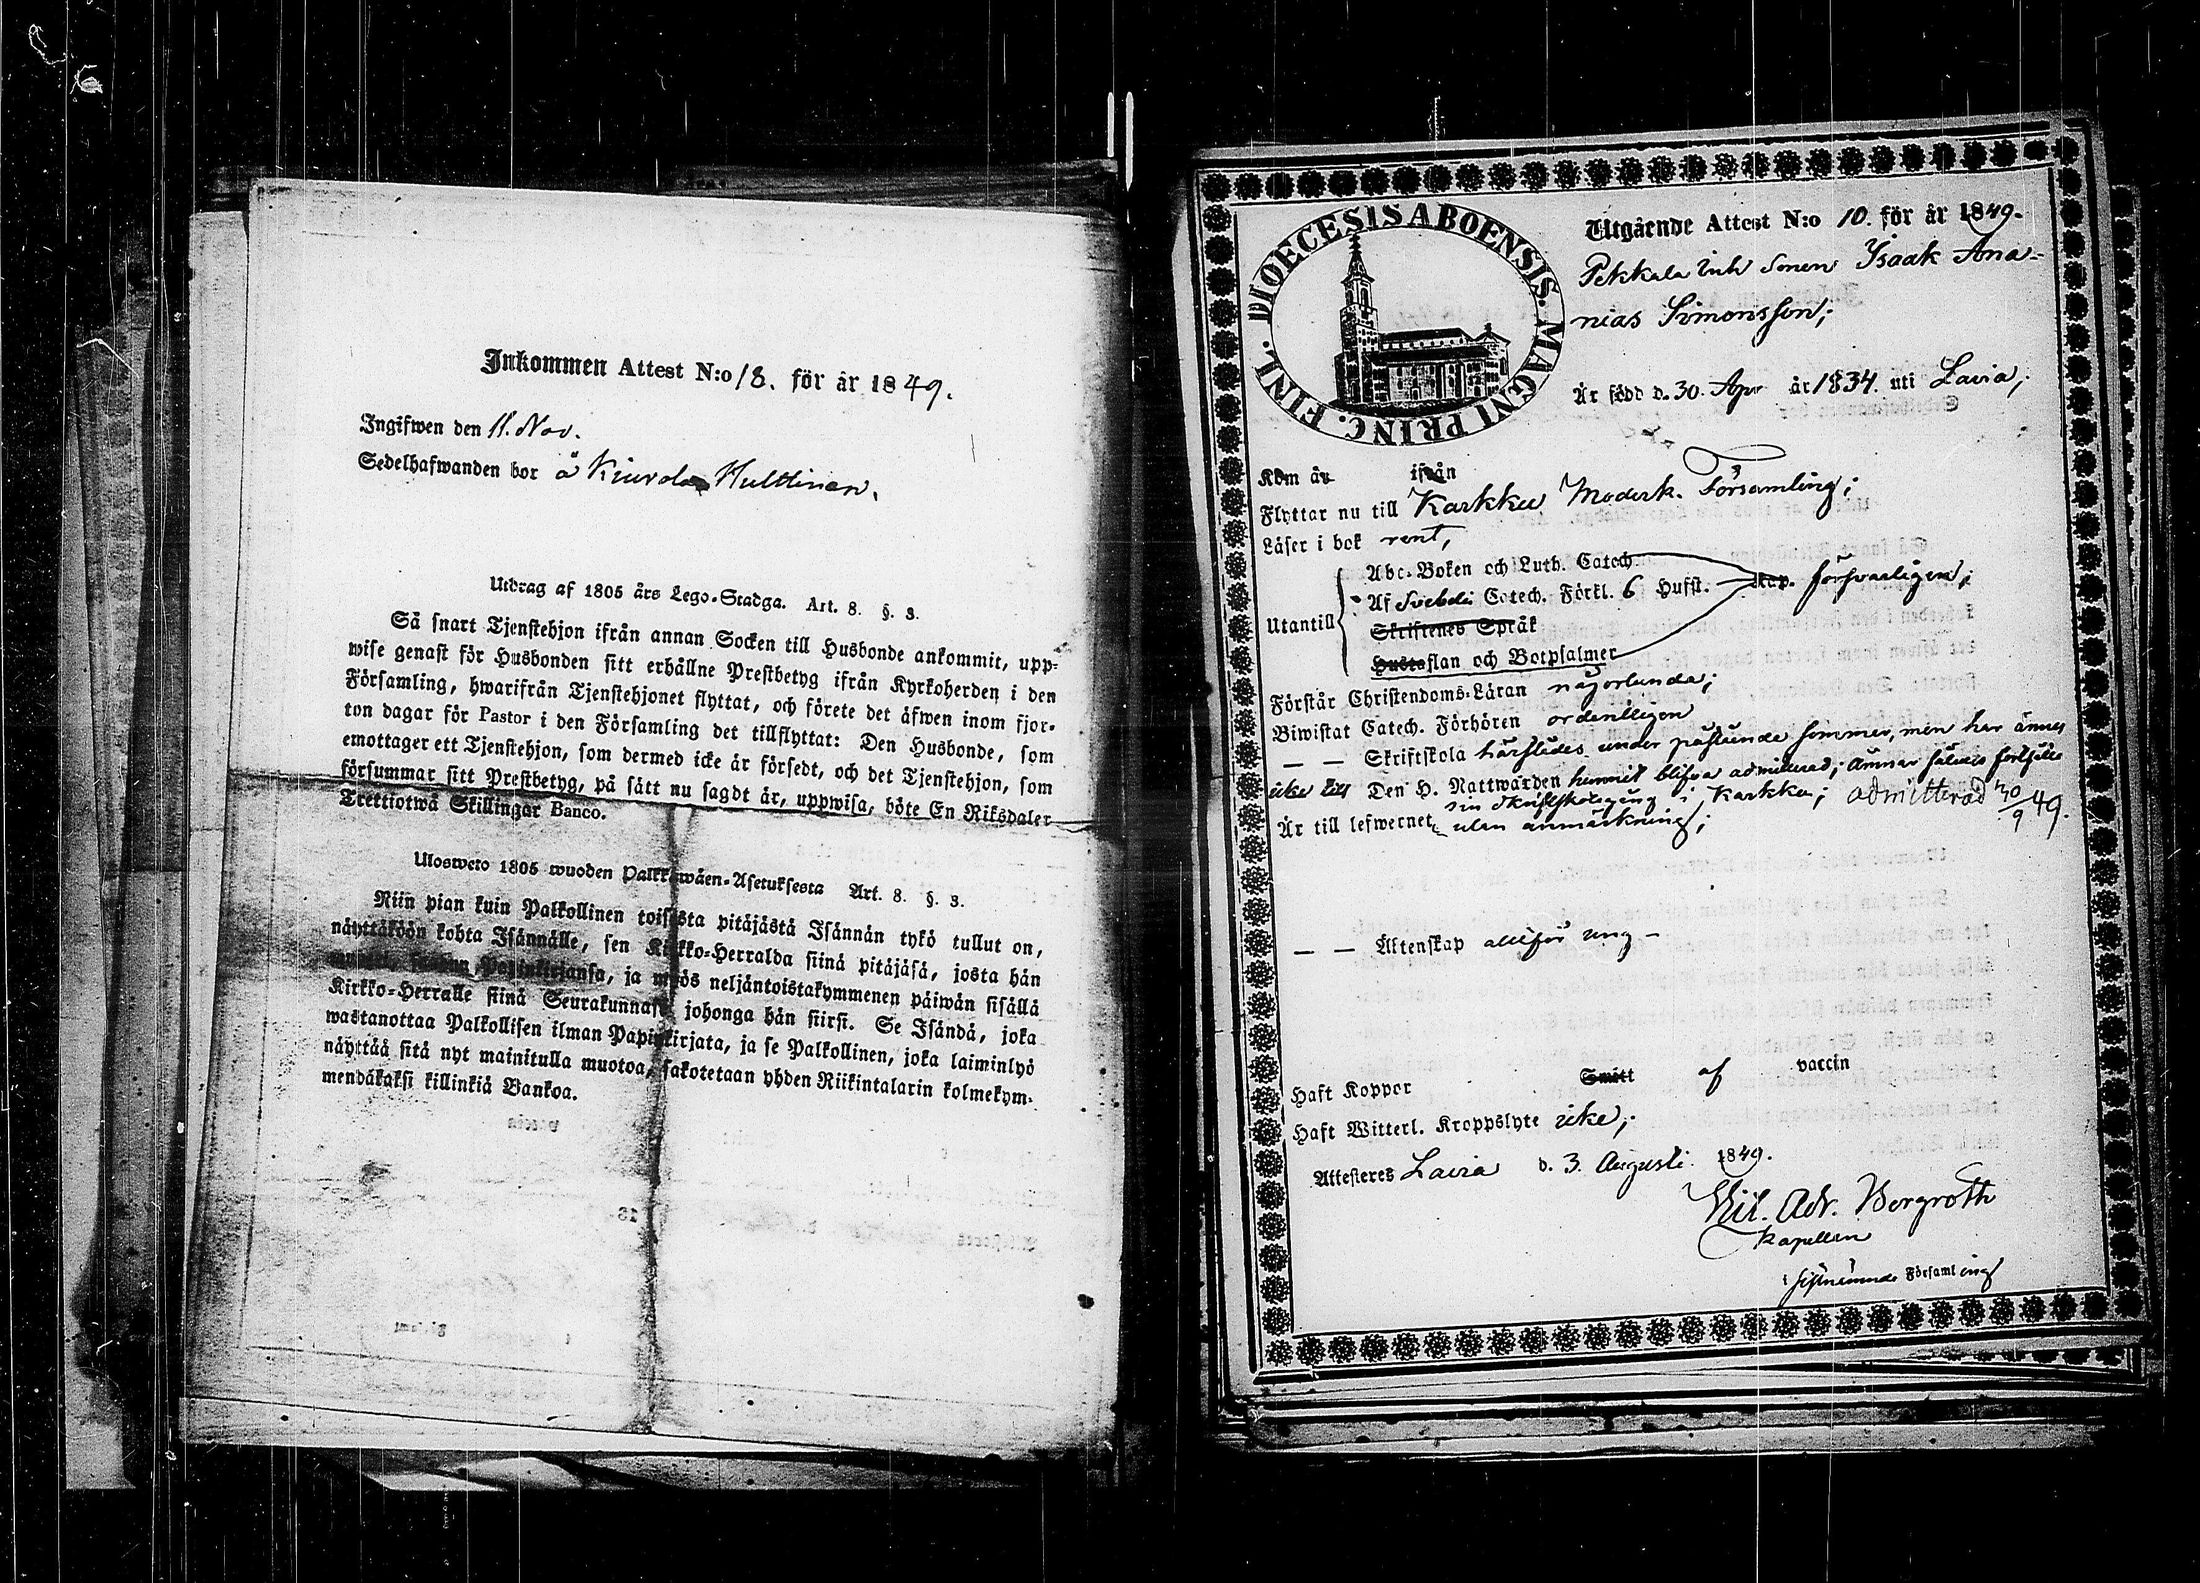 Inkommen Attest N:o 18. för år 1849.
Ingifwen den 11. Nov.
Sedelhafwanden bor å Kiurala Hulttinen.
Utdrag af 1805 års Lego-Stadga. Art. 8. §. 3.
Så snart Tjenstehjon ifrån annan Socken till Husbonde ankommit, upp-
wise genast för Husbonden sitt erhållne Prestbetyg ifrån Kyrkoherden i den
Församling, hwarifrån Tjenstehjonet flyttat, och förete det äfwen inom fjor-
ton dagar för Pastor i den Församling det tillflyttat: Den Husbonde, som
emottager ett Tjenstehjon, som dermed icke är försedt, och det Tjenstehjon, som
försummar sitt Prestbetyg, på sätt nu sagdt är, uppwisa, böte En Riksdaler
Trettiotwå Skillingar Banco.
Ulosweto 1805 wuoden Palkkawäen-Asetuksesta Art. 8. §. 3.
Niin pian kuin Palkollinen toisesta pitäjästä Isännän tykö tullut on,
näyttäköön kohta Isännälle, sen Kirkko-Herralda siinä pitäjäsä, josta hän
muutti, saadun Papinkirjansa, ja myös neljäntoistakymmenen päiwän sisällä
Kirkko-Herralle siinä Seurakunnasa johonga hän siirsi. Se Isändä, joka
wastanottaa Palkollisen ilman Papinkirjata, ja se Palkollinen, joka laiminlyö
näyttää sitä nyt mainitulla muotoa, sakotetaan yhden Riikintalarin kolmekym-
mendäkaksi killinkiä Bankoa.
DIOECESIS ABOENSIS. MAGNI PRINC. FINL.
Utgående Attest N:o 10. för år 1849.
Pekkala Inh Sonen Isaak Ana-
nias Simonsson;
Är född d. 30. Apr år 1834. uti Lavia;
Kom år ifrån
Flyttar nu till Karkku Moderk. Församling;
Läser i bok rent,
Abc-Boken och Luth. Catech.
Utantill Af Svebelii Catech. Förkl. 6 Hufst. Kap. försvarligen;
Skriftenes Språk
Hustaflan och Botpsalmer
Förstår Christendoms-Läran någorlunda;
Biwistat Catech. Förhören ordentligen
— — Skriftskola härstädes under påstående sommar, men har ännu
icke till Den H. Nattwarden hunnit blifva admitterad; ämnar således fortsätta
sin skriftskolegång i Karkku; admitterad 30/9 49.
Är till lefwernet utan anmärkning;
— — Äktenskap alltför ung -
Haft Koppor Smitt af vaccin
Haft Witterl. Kroppslyte icke;
Attesteres Lavia d. 3. Augusti 1849.
Adr. Bergroth
Kapellan
i sistnämnde Församling